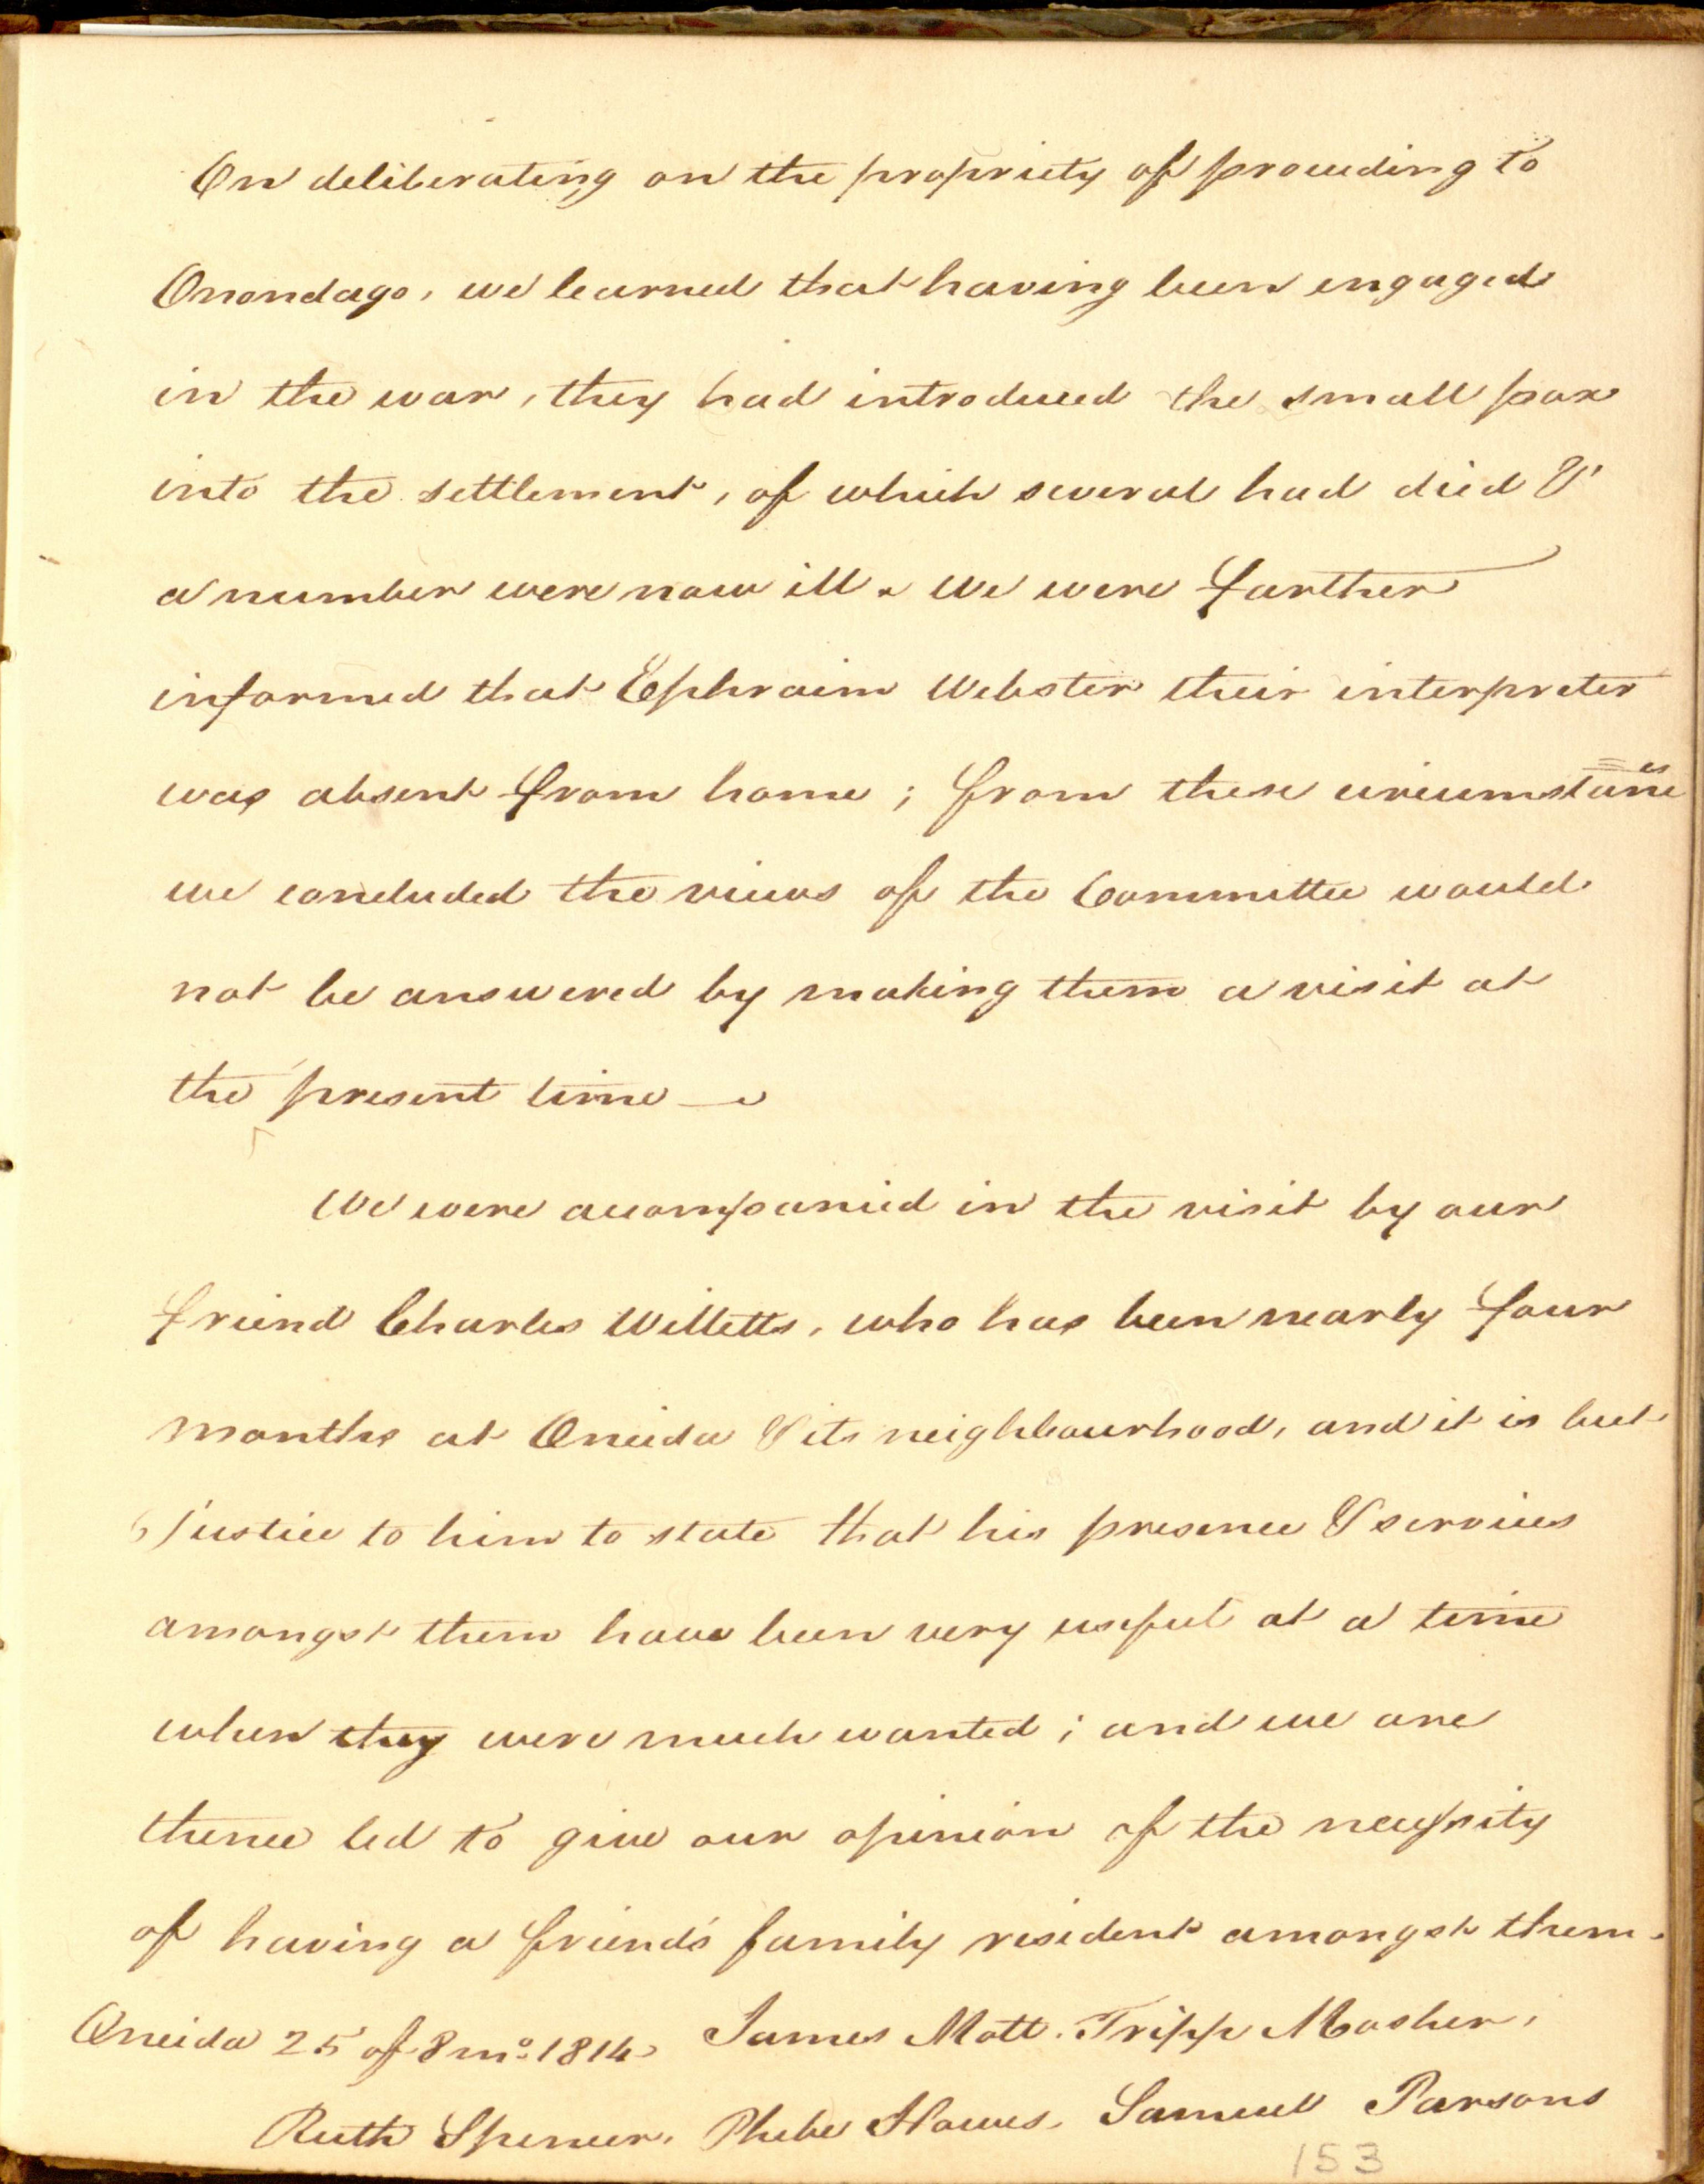 On deliberating on the propriety of proceeding to
Onondago, we learned that having been engaged
in the war, they had introduced the small pox
into the settlement, of which several had died &
a number were now ill. We were farther
informed that Ephraim Webster their interpreter
was absent from home; from these circumstances
we concluded the views of the Committee would
not be answered by making them a visit at
the present time —
We were accompanied in the visit by our
friend Charles Willetts, who has been nearly four
months at Oneida & its neighbourhood, and it is but
justice to him to state that his presence & services
amongst them have been very useful at a time
when they were much wanted; and we are
thence led to give our opinion of the necessity
of having a friend's family resident amongst them.
Oneida 25 of 8 mo. 1814. James Mott. Tripp Mosher,
Ruth Spencer, Phebe Hawes. Samuel Parsons
153